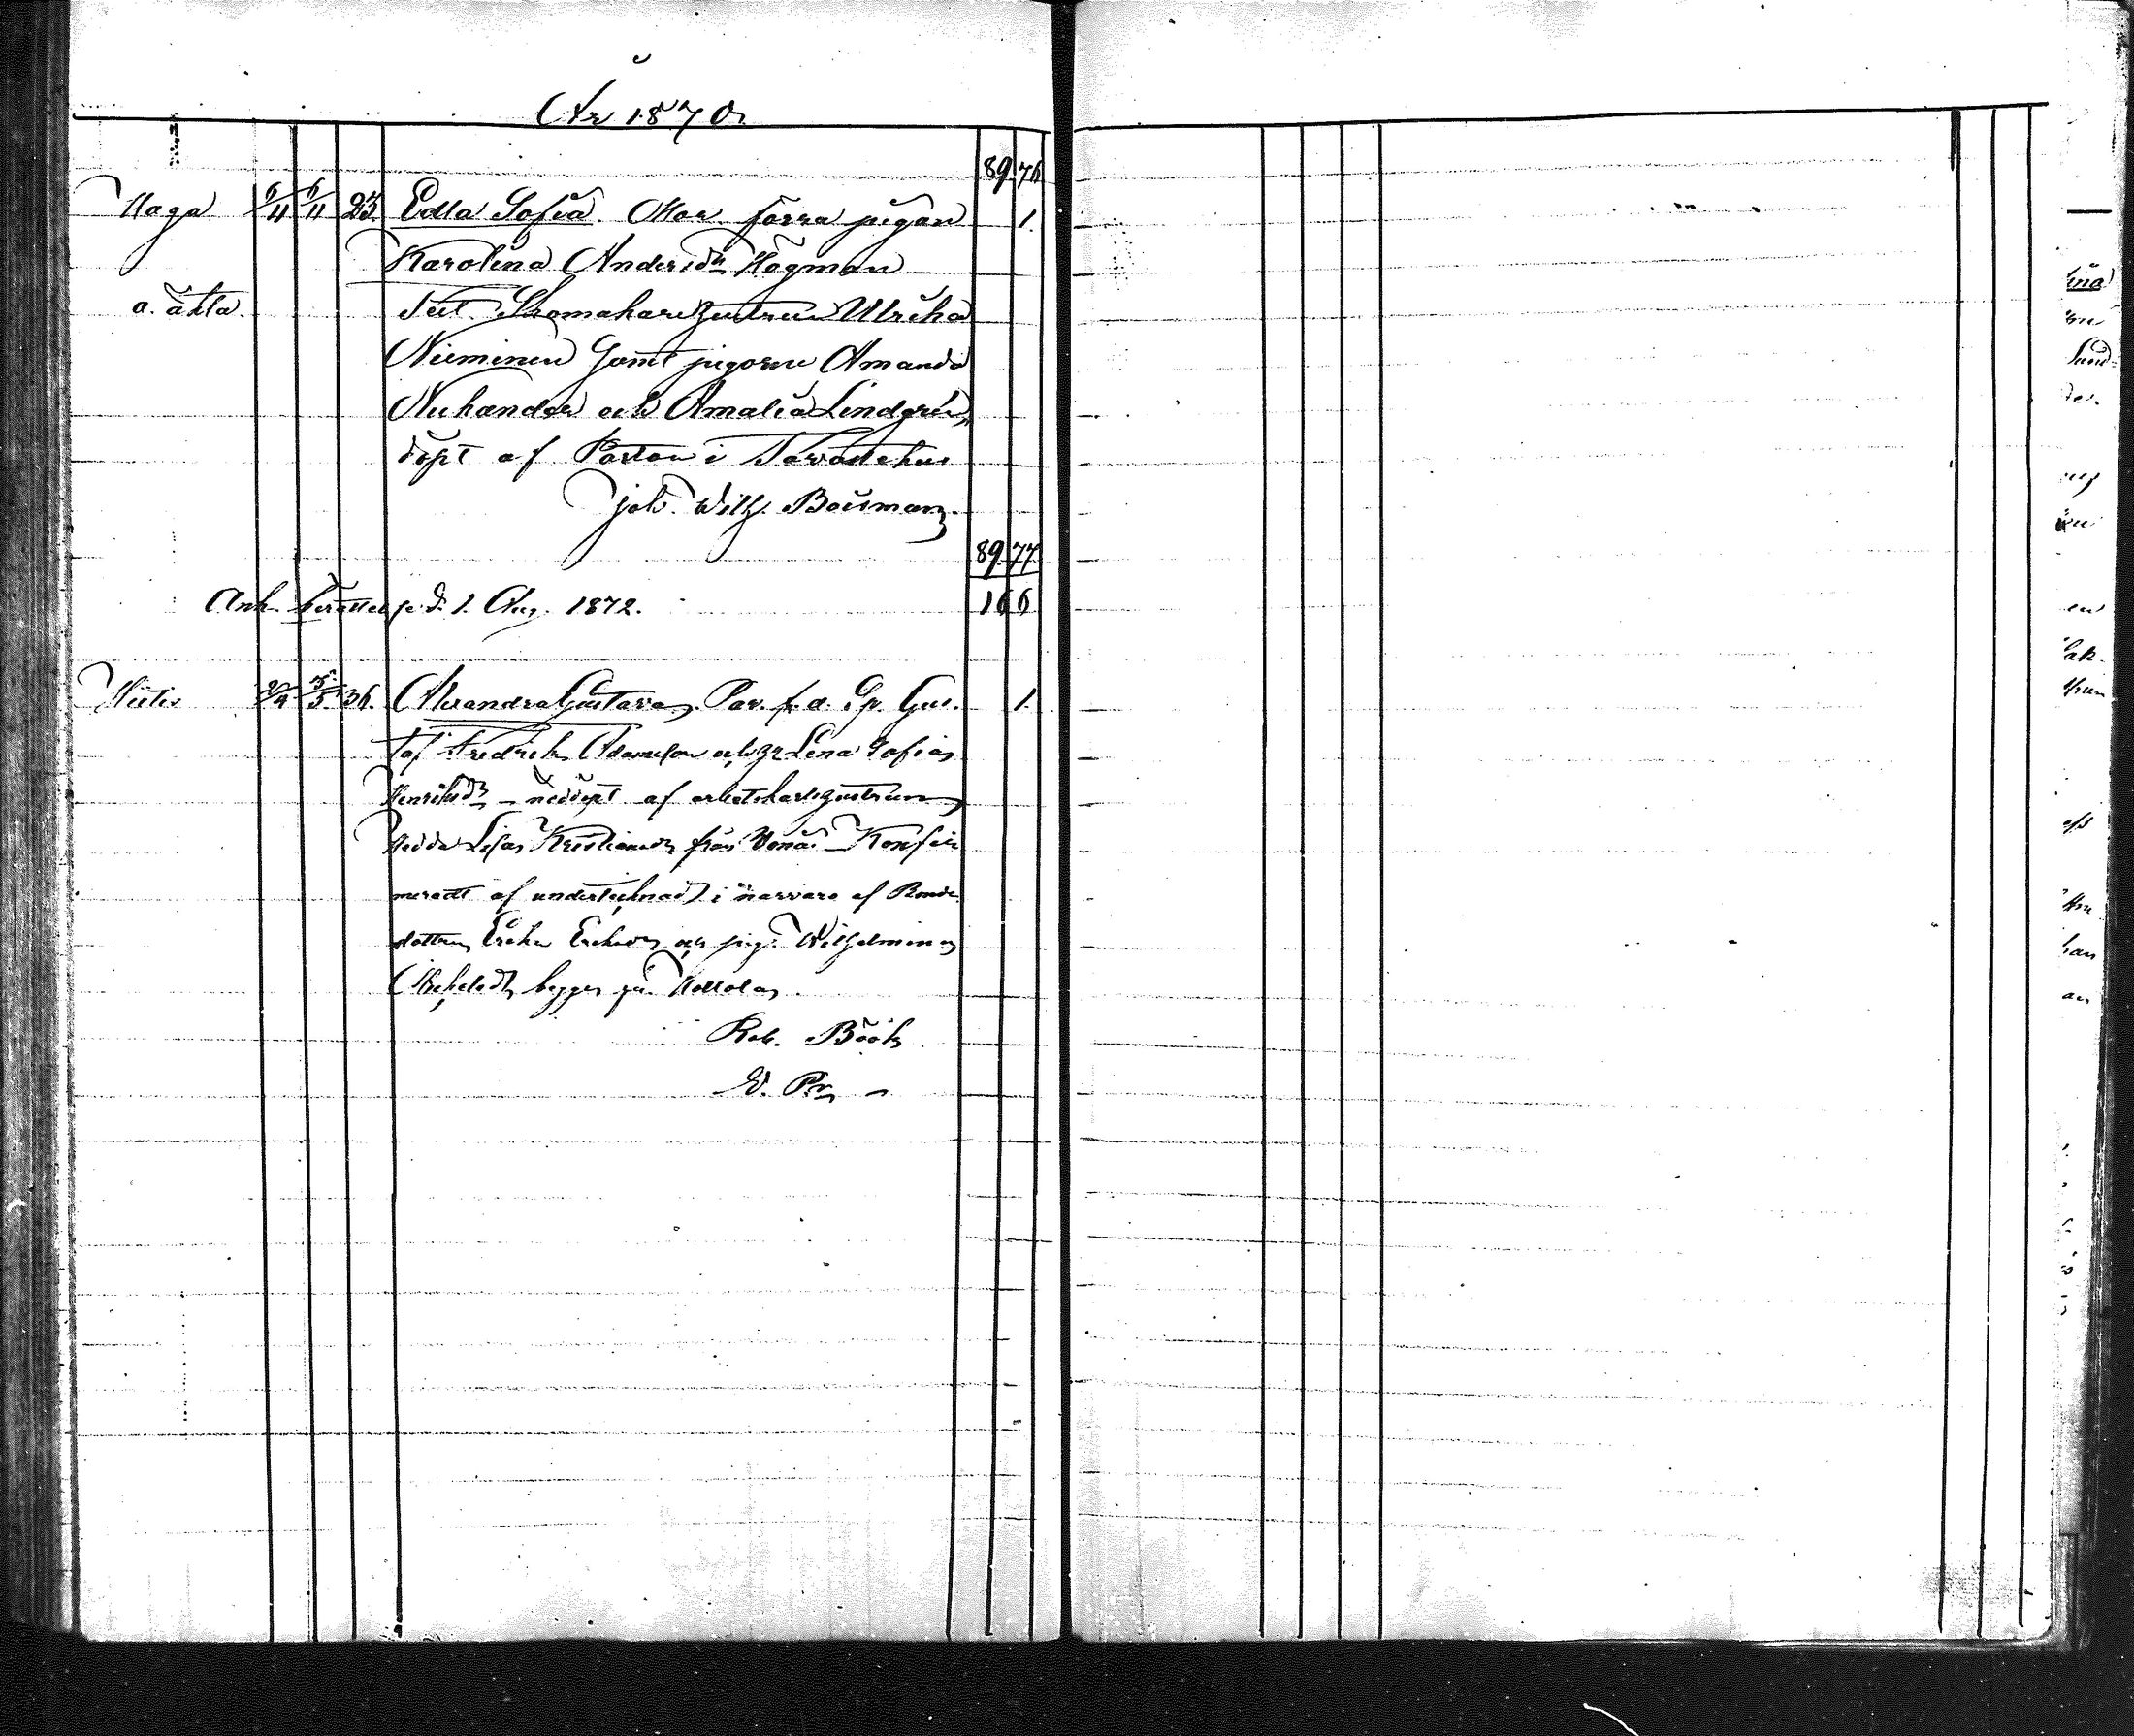 År 1870.
89 76
Haga 6/11 6/11 25. Edla Sofia. Mor. förra pigan 1.
Karolina Andersdr Högman
o. äkta. Test. Skomakarehustrun Ulrika
Nieminen samt pigorna Amanda
Nykander och Amalia Lindgrén,
döpt af Pastorn i Tavastehus
Joh. Wilh. Boisman.
89. 77.
Anh. berättelse d. 1. Aug. 1872. 166
5/5. 36. Alexandra Gustava. Par. f. d. Sp. Gus- 1.
taf Fredrik Adamsson och h. Lena Sofia
Henriksdr – nöddöpt af arbetskarlshustrun
Hedda Lisa Kristiansdr från – Konfir
meradt af undertecknad i närvaro af Bonde
dottren Erika Ericsdr och pig. Wilhelmina
begge på Hollola.
Rob. Böök
V. Pr.